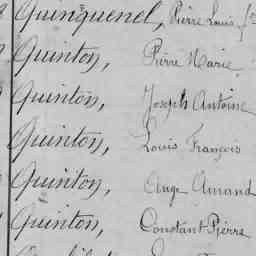 Quinquenel, Pierre Louis
Quinton, Pierre Marie
Quinton, Joseph Antoine
Quinton, Louis François
Quinton, Ange Amand
Quinton, Constant Pierre